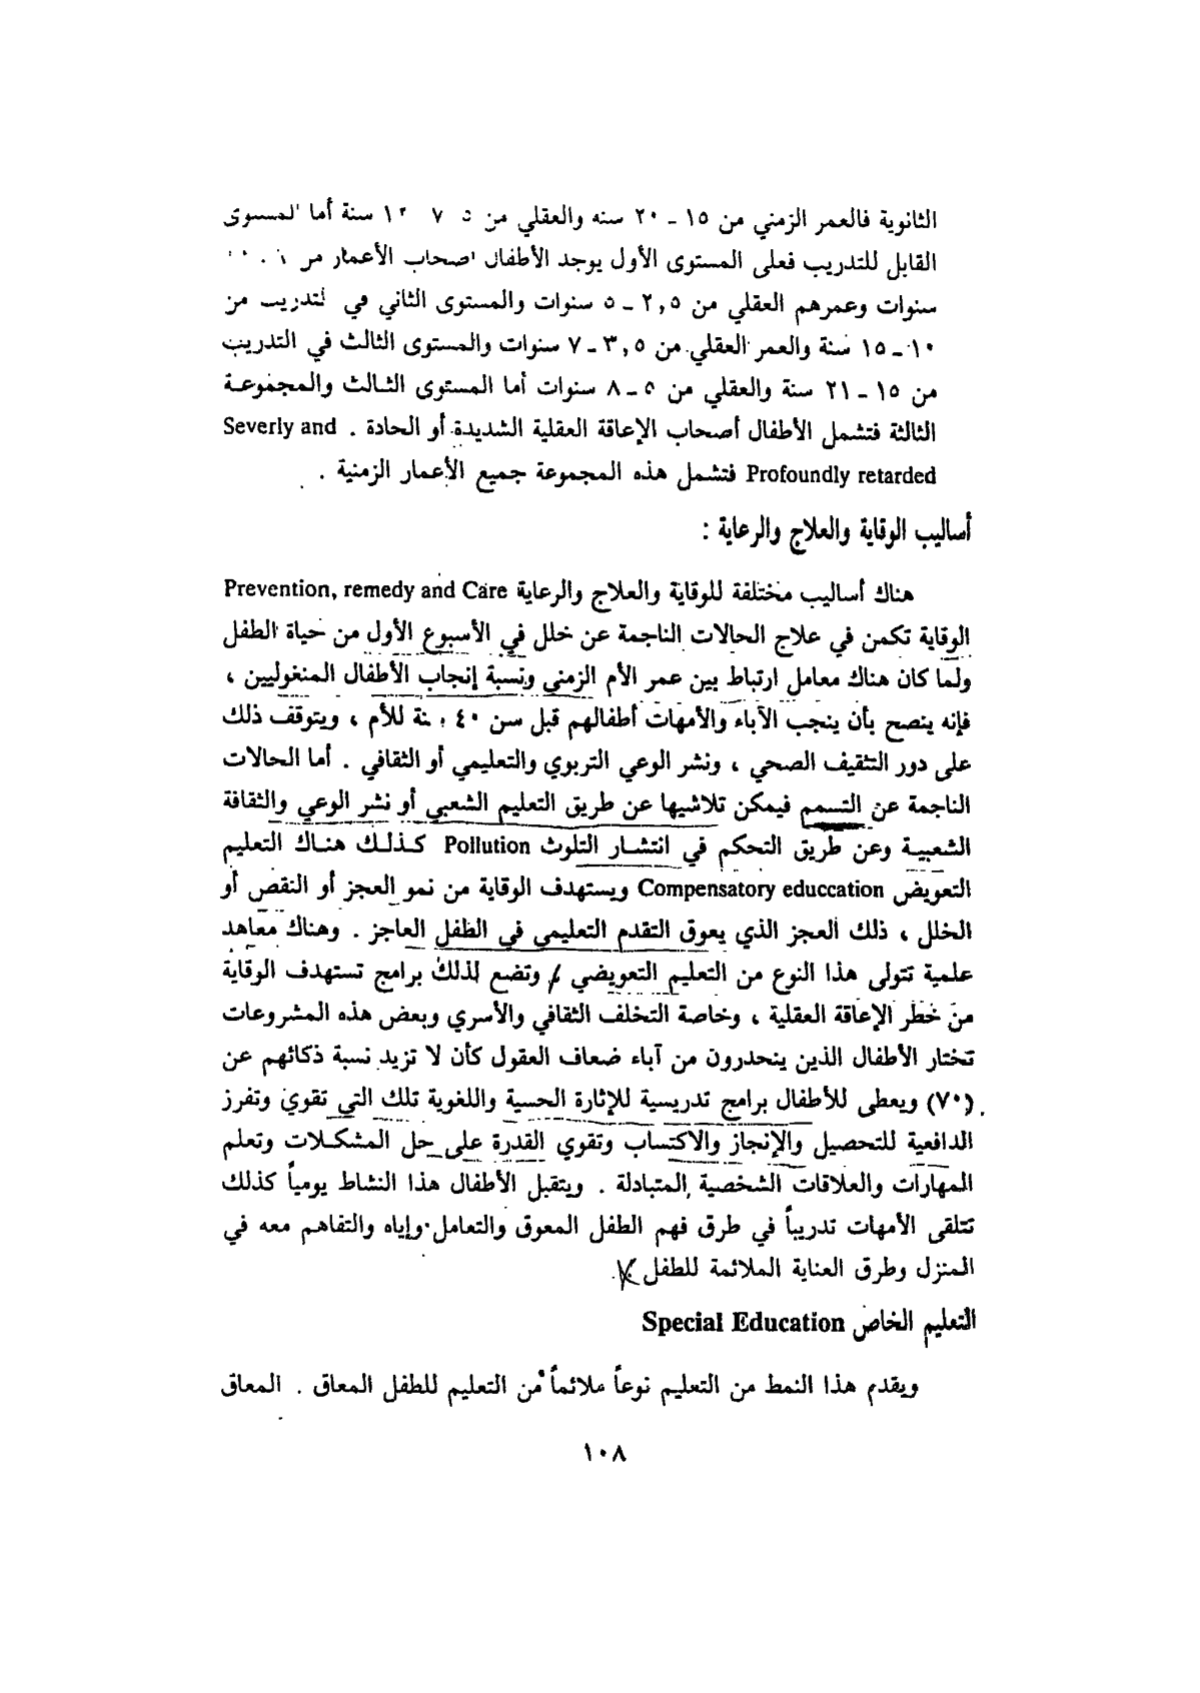 الثانوية فالعمر الزمني من ١٥ ـ ٢٠ سنه والعقلي من ٧ ١٢ سنة أما المستوى
القابل للتدريب فعلى المستوى الأول يوجد الأطفال اصحاب الأعمار من
سنوات وعمرهم العقلي من ٢,٥ ـ ٥ سنوات والمستوى الثاني في التدريب من
١٠ ـ ١٥ سنة والعمر العقلي من ٣,٥ ـ ٧ سنوات والمستوى الثالث في التدريب
من ١٥ ـ ٢١ سنة والعقلي من ٥ ـ ٨ سنوات أما المستوى الثالث والمجموعة
الثالثة فتشمل الأطفال أصحاب الإعاقة العقلية الشديدة أو الحادة . Severly and
Profoundly retarded فتشمل هذه المجموعة جميع الأعمار الزمنية .
أساليب الوقاية والعلاج والرعاية :
هناك أساليب مختلفة للوقاية والعلاج والرعاية Prevention, remedy and Care
الوقاية تكمن في علاج الحالات الناجمة عن خلل في الأسبوع الأول من حياة الطفل
ولما كان هناك معامل ارتباط بين عمر الأم الزمني ونسبة إنجاب الأطفال المنغوليين ،
فإنه ينصح بأن ينجب الآباء والأمهات أطفالهم قبل سن ٤٠ سنة للأم ، ويتوقف ذلك
على دور التثقيف الصحي ، ونشر الوعي التربوي والتعليمي أو الثقافي . أما الحالات
الناجمة عن التسمم فيمكن تلاشيها عن طريق التعليم الشعبي أو نشر الوعي والثقافة
الشعبية وعن طريق التحكم في انتشار التلوث Pollution كذلك هناك التعليم
التعويض Compensatory educcation ويستهدف الوقاية من نمو العجز أو النقص أو
الخلل ، ذلك العجز الذي يعوق التقدم التعليمي في الطفل العاجز . وهناك معاهد
علمية تتولى هذا النوع من التعليم التعويضي / وتضع لذلك برامج تستهدف الوقاية
من خطر الإعاقة العقلية ، وخاصة التخلف الثقافي والأسري وبعض هذه المشروعات
تختار الأطفال الذين ينحدرون من آباء ضعاف العقول كأن لا تزيد نسبة ذكائهم عن
(٧٠) ويعطى للأطفال برامج تدريسية للإثارة الحسية واللغوية تلك التي تقوي وتفرز
الدافعية للتحصيل والإنجاز والاكتساب وتقوي القدرة على حل المشكلات وتعلم
المهارات والعلاقات الشخصية المتبادلة . ويتقبل الأطفال هذا النشاط يومياً كذلك
تتلقى الأمهات تدريباً في طرق فهم الطفل المعوق والتعامل وإياه والتفاهم معه في
المنزل وطرق العناية الملائمة للطفل .
التعليم الخاص Special Education
ويقدم هذا النمط من التعليم نوعاً ملائماً من التعليم للطفل المعاق . المعاق
١٠٨